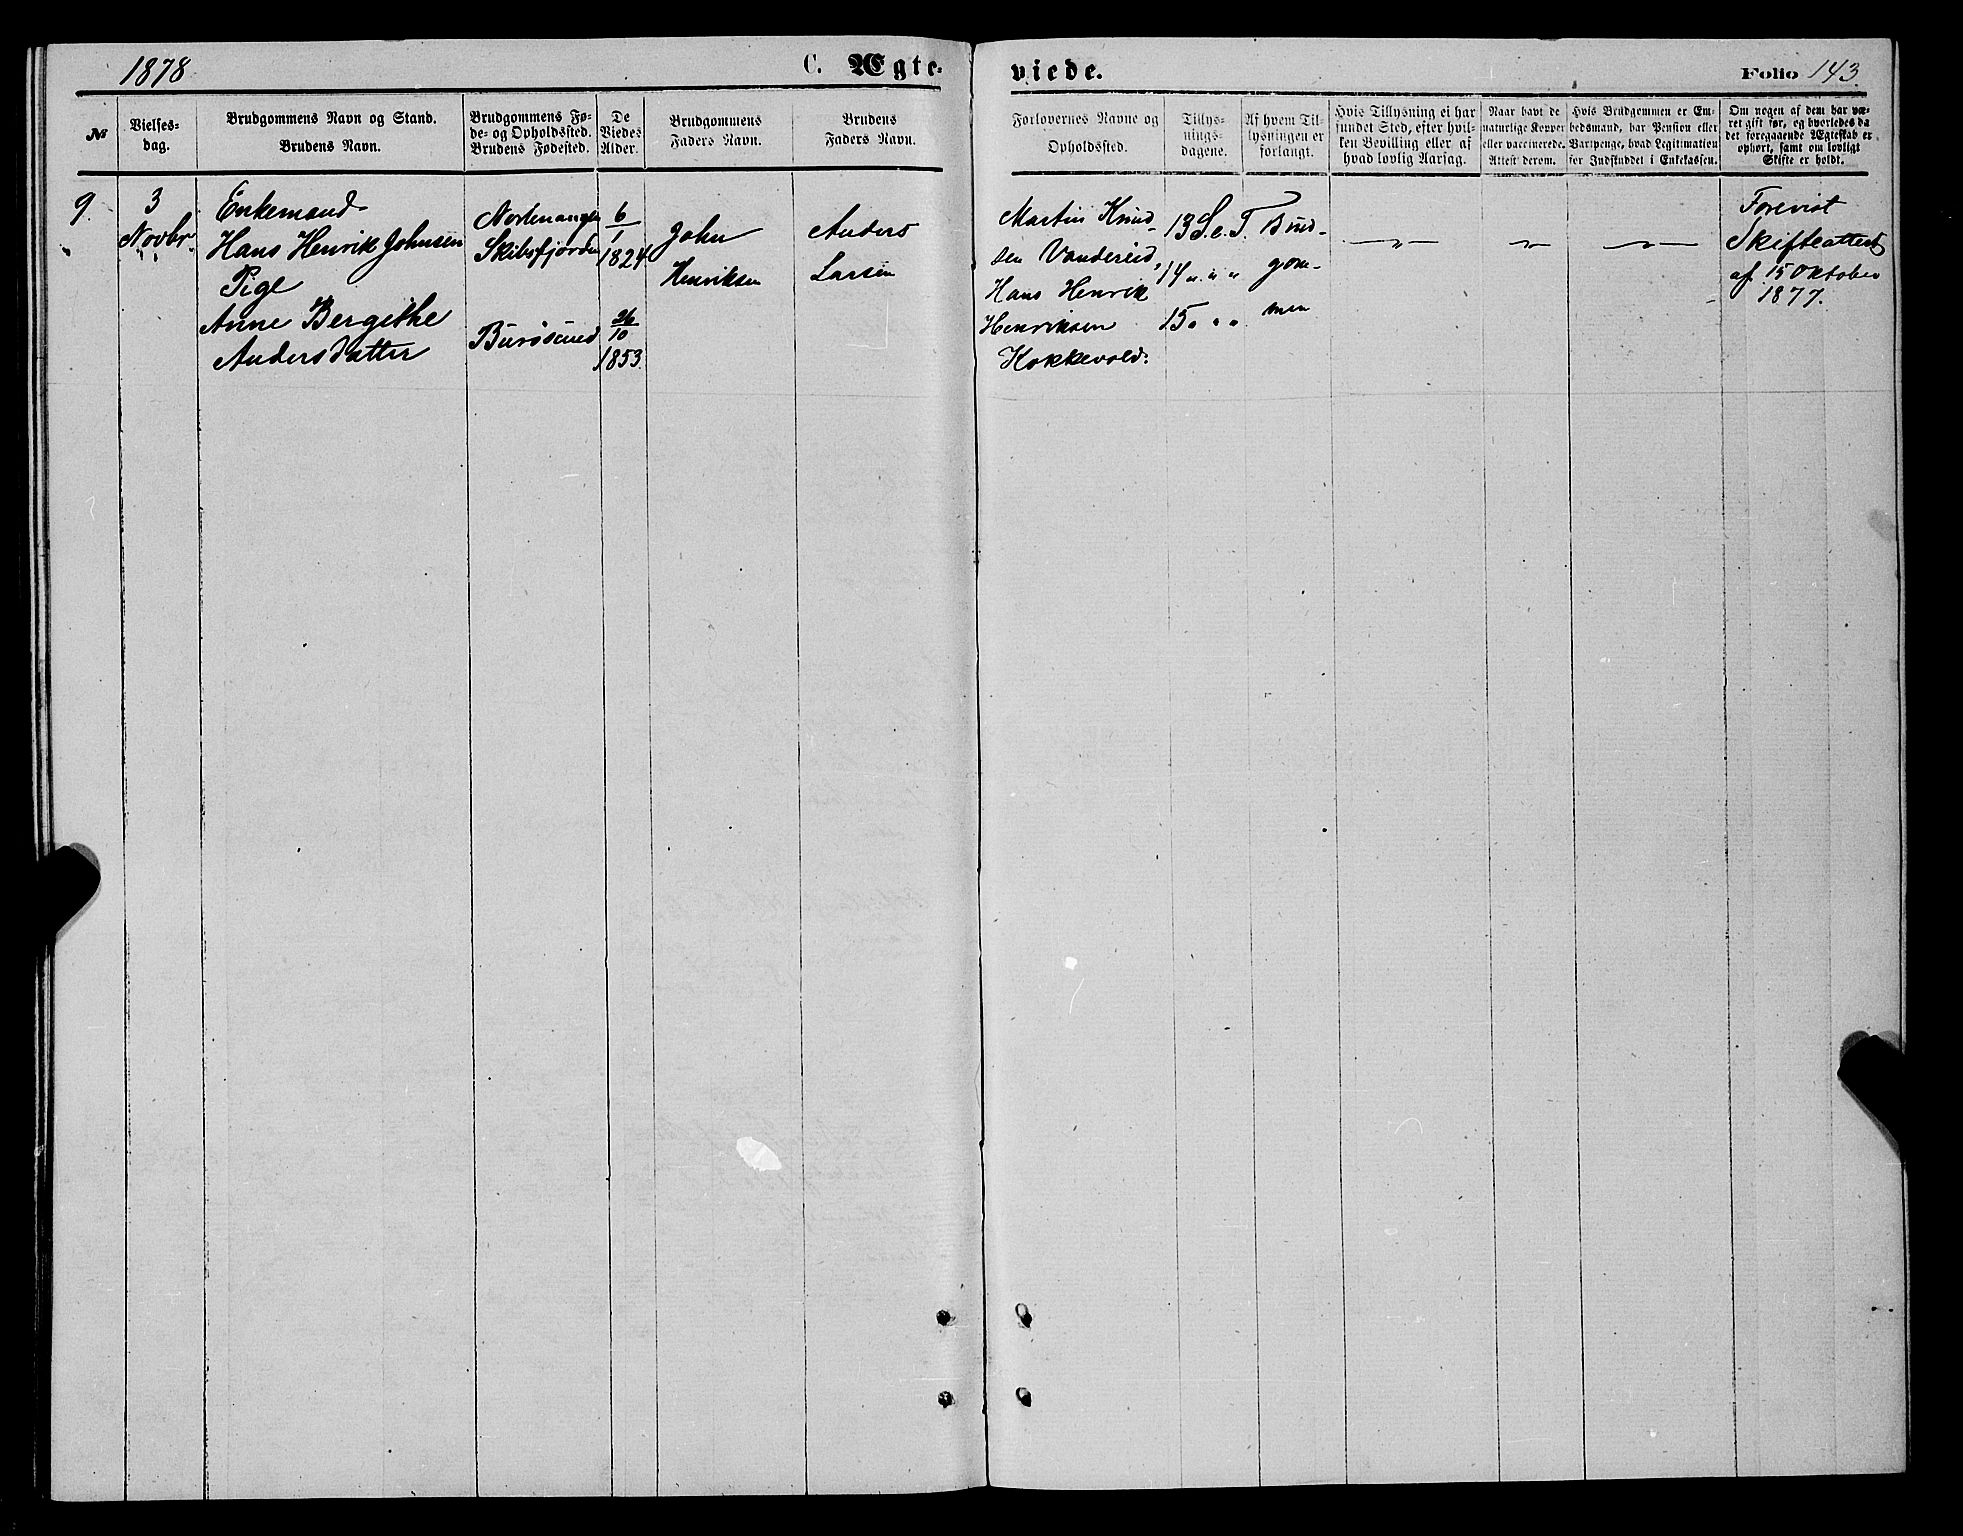 1878
C. Ægte-
viede.
Folio 143
№
Vielses-
dag.
Brudgommens Navn og Stand.
Brudens Navn.
Brudgommens Fø-
de- og Opholdssted.
Brudens Fødested.
De
Viedes
Alder.
Brudgommens
Faders Navn.
Brudens
Faders Navn.
Forlovernes Navne og
Opholdssted.
Tillys-
nings-
dagene.
Af hvem Til-
lysningen er
forlangt.
Hvis Tillysning ei har
fundet Sted, efter hvil-
ken Bevilling eller af
hvad lovlig Aarsag.
Naar havt de
naturlige Kopper
eller vaccinerede.
Attest derom.
Hvis Brudgommen er Em-
bedsmand, har Pension eller
Vartpenge, hvad Legitimation
for Indskuddet i Enkekassen.
Om nogen af dem har væ-
ret gift før, og hvorledes da
det foregaaende Ægteskab er
ophørt, samt om lovligt
Skifte er holdt.
9.
3
Novbr.
Enkemand
Hans Henrik Johnsen
Pige
Anne Bergithe
Andersdatter
Skibsfjorden
Burøsund
6
1
1824
26
10
1853.
John
Henriksen
Anders
Larsen
Martin Knud-
sen Vandereid,
Hans Henrik
Henriksen
Kokkevold.
13 S. e. T.
14 " " "
15 " " "
Brud-
gom-
men
— " —
— " —
— " —
Forevist
Skifteattest
af 15 Oktober
1877.